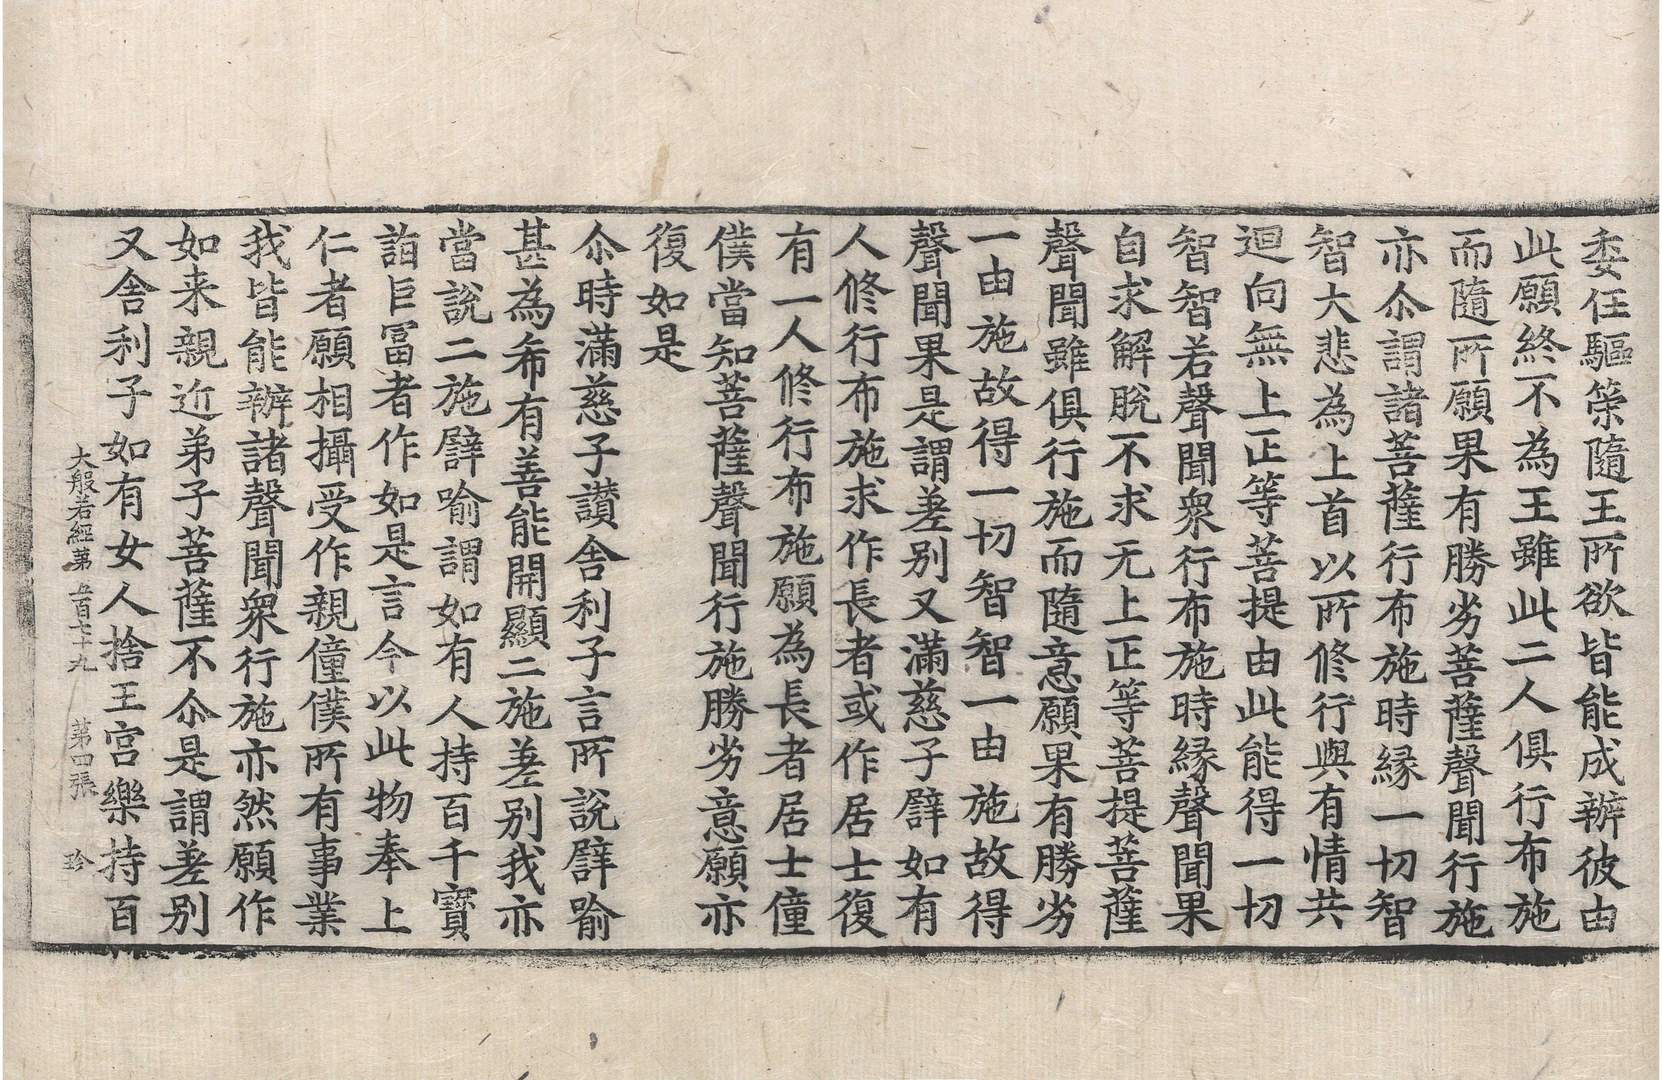 委任驅策隨王所欲皆能成辦彼由
此願終不為王雖此二人俱行布施
而隨所願果有勝劣菩薩聲聞行施
亦尒謂諸菩薩行布施時緣一切智
智大悲為上首以所修行與有情共
迴向無上正等菩提由此能得一切
智智若聲聞衆行布施時緣聲聞果
自求解脫不求无上正等菩提菩薩
聲聞雖俱行施而隨意願果有勝劣
一由施故得一切智智一由施故得
聲聞果是謂差別又滿慈子譬如有
人修行布施求作長者或作居士復
有一人修行布施願為長者居士僮
僕當知菩薩聲聞行施勝劣意願亦
復如是
尒時滿慈子讃舍利子言所說譬喻
甚為希有善能開顯二施差別我亦
當說二施譬喻謂如有人持百千寶
詣巨冨者作如是言今以此物奉上
仁者願相攝受作親僮僕所有事業
我皆能辦諸聲聞衆行施亦然願作
如来親近弟子菩薩不尒是謂差別
又舍利子如有女人捨王宫樂持百
大般若經第五百七十九 第四張 珍